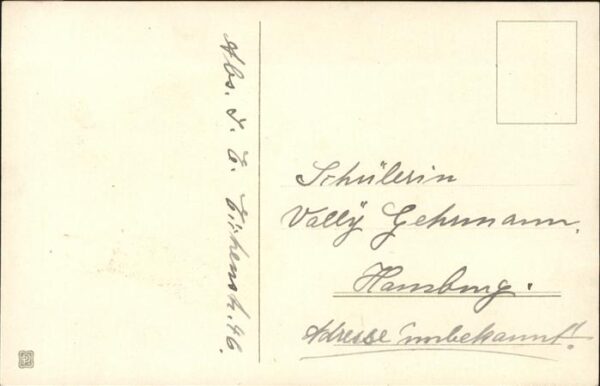 Abs. I. E. 46.
Schülerin
Vally Gehrmann.
Hamburg.
Adresse unbekannt!